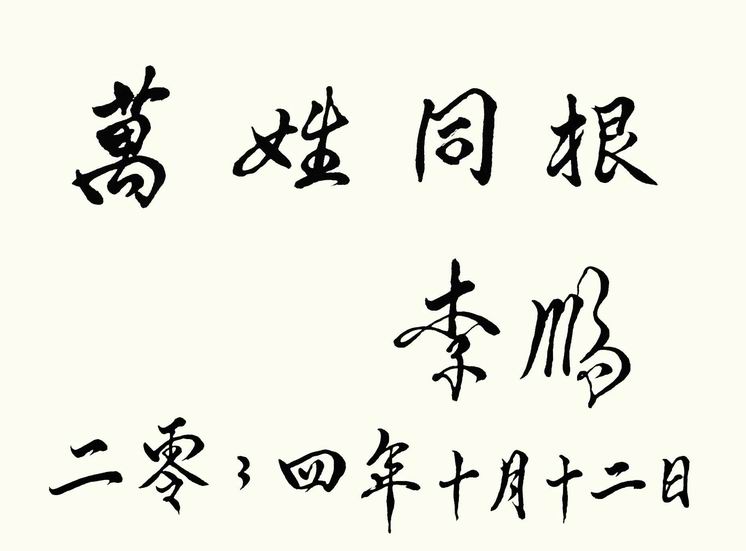 萬姓同根
李鹏
二零〻四年十月十二日